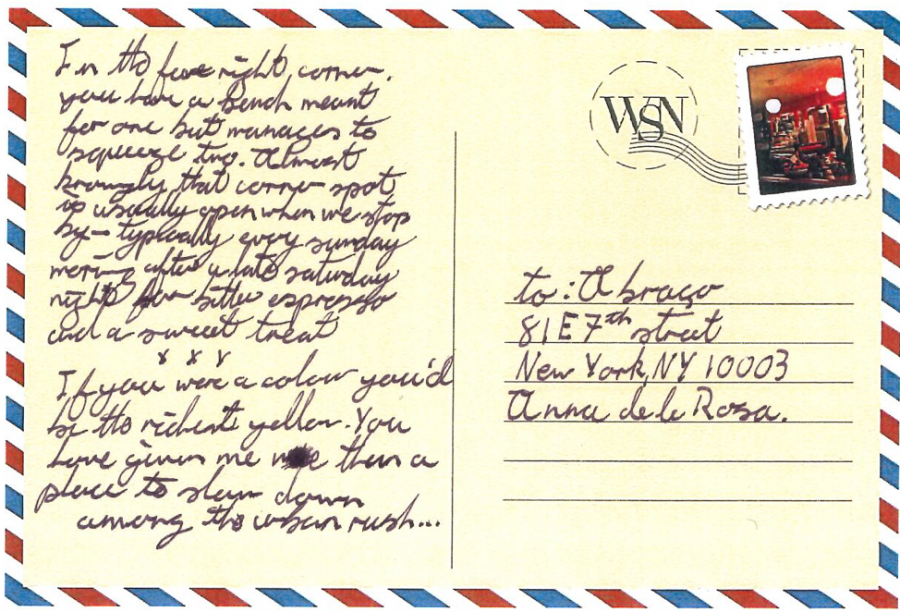 In the far right corner,
you have a bench meant
for one but manages to
squeeze two. Almost
knowingly that corner spot
is usually open when we stop
by – typically every sunday
morning after a late saturday
night for bitter espresso
and a sweet treat
x x x
If you were a color you'd
be the richest yellow. You
have given me more than a
place to slow down
among the urban rush...
WSN
to: Abraço
81 E 7th street
New York, NY 10003
Anna de la Rosa.